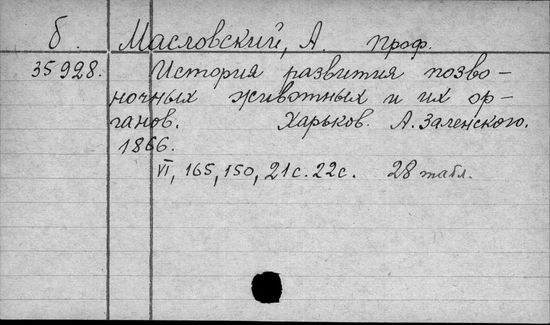 б. Масловский, А. проф.
35928. История развития позво-
ночных животных и их ор-
ганов. Харьков. А. Заленского.
1866.
VI, 165, 150, 21 с. 22 с. 28 табл.